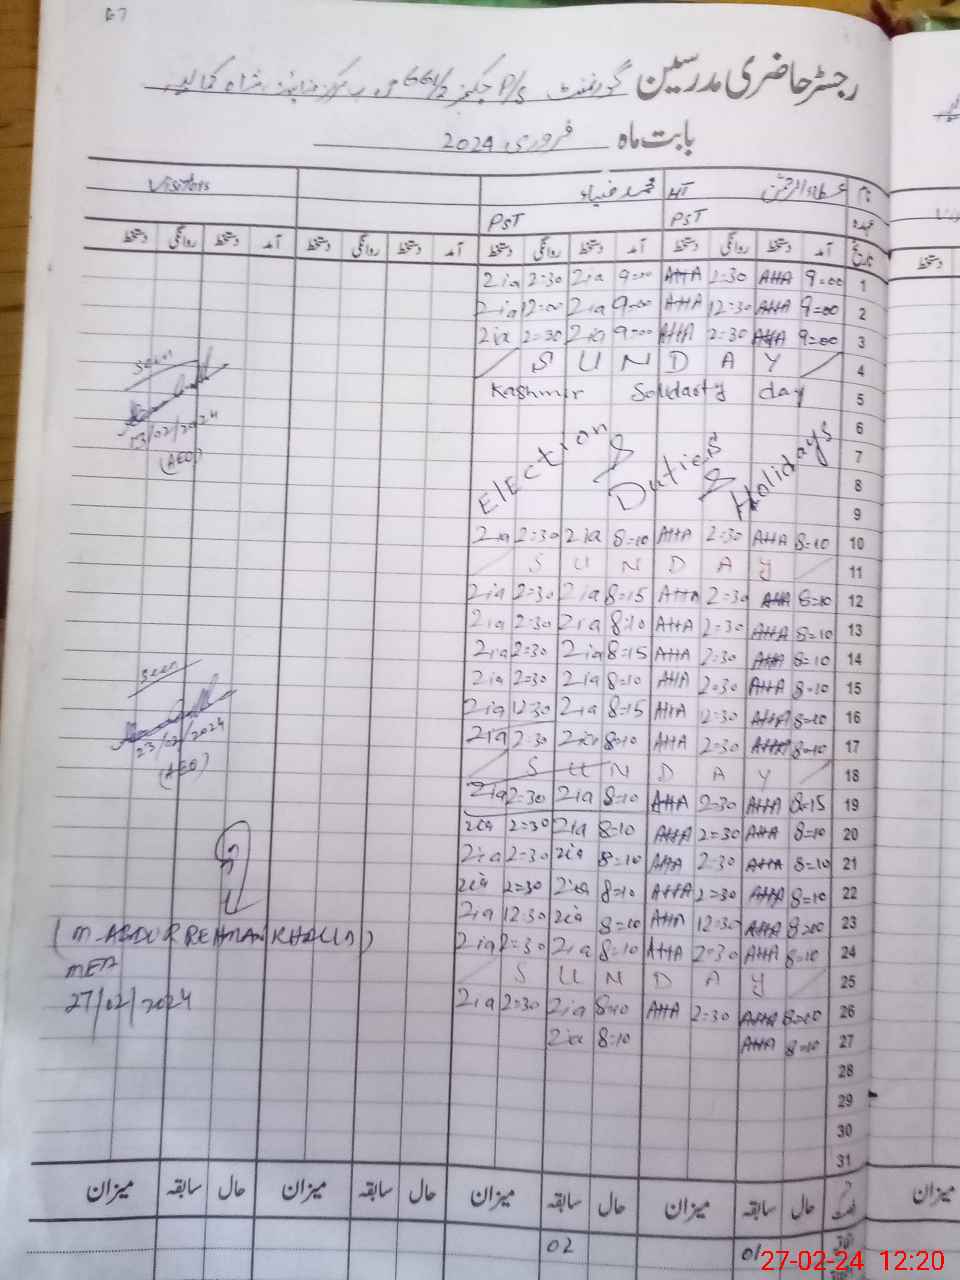 67
رجسٹر حاضری مدرسین گورنمنٹ P/S چک نمبر 661/2
بابت ماہ فروری 2024
نام عطاءالرحمن HT محمد ضیاء Visitors
عہدہ PST PST
تاریخ آمد دستخط روانگی دستخط آمد دستخط روانگی دستخط آمد دستخط روانگی دستخط آمد دستخط روانگی دستخط
2ia 2=30 2ia 9=00 AHA 2=30 AHA 9=00 1
2ia 12=00 2ia 9=00 AHA 12=30 AHA 9=00 2
2ia 2=30 2ia 9=00 AHA 2=30 AHA 9=00 3
S U N D A Y 4
Kashmir Solidarty day 5
6
7
8
9
Election & Duties & Holidays
2ia 2=30 2ia 8=10 AHA 2=30 AHA 8=10 10
S U N D A Y 11
2ia 2=30 2ia 8=15 AHA 2=30 AHA 8=10 12
2ia 2=30 2ia 8=10 AHA 2=30 AHA 8=10 13
2ia 2=30 2ia 8=15 AHA 2=30 AHA 8=10 14
2ia 2=30 2ia 8=10 AHA 2=30 AHA 8=10 15
2ia 12=30 2ia 8=15 AHA 12=30 AHA 8=10 16
2ia 2=30 2ia 8=10 AHA 2=30 AHA 8=10 17
S U N D A Y 18
2ia 2=30 2ia 8=10 AHA 2=30 AHA 8=15 19
2ia 2=30 2ia 8=10 AHA 2=30 AHA 8=10 20
2ia 2=30 2ia 8=10 AHA 2=30 AHA 8=10 21
2ia 2=30 2ia 8=10 AHA 2=30 AHA 8=10 22
2ia 12=30 2ia 8=10 AHA 12=30 AHA 8=00 23
2ia 2=30 2ia 8=10 AHA 2=30 AHA 8=10 24
S U N D A Y 25
2ia 2=30 2ia 8=10 AHA 2=30 AHA 8=10 26
2ia 8=10 AHA 8=10 27
28
29
30
31
seen
13/02/2024
(AEO)
seen
23/02/2024
(AEO)
(M-ABDUR REHMAN KHALID)
MEA
27/02/2024
حال سابقہ میزان حال سابقہ میزان حال سابقہ میزان حال سابقہ میزان
02 01
دستخط
میزان
27-02-24 12:20